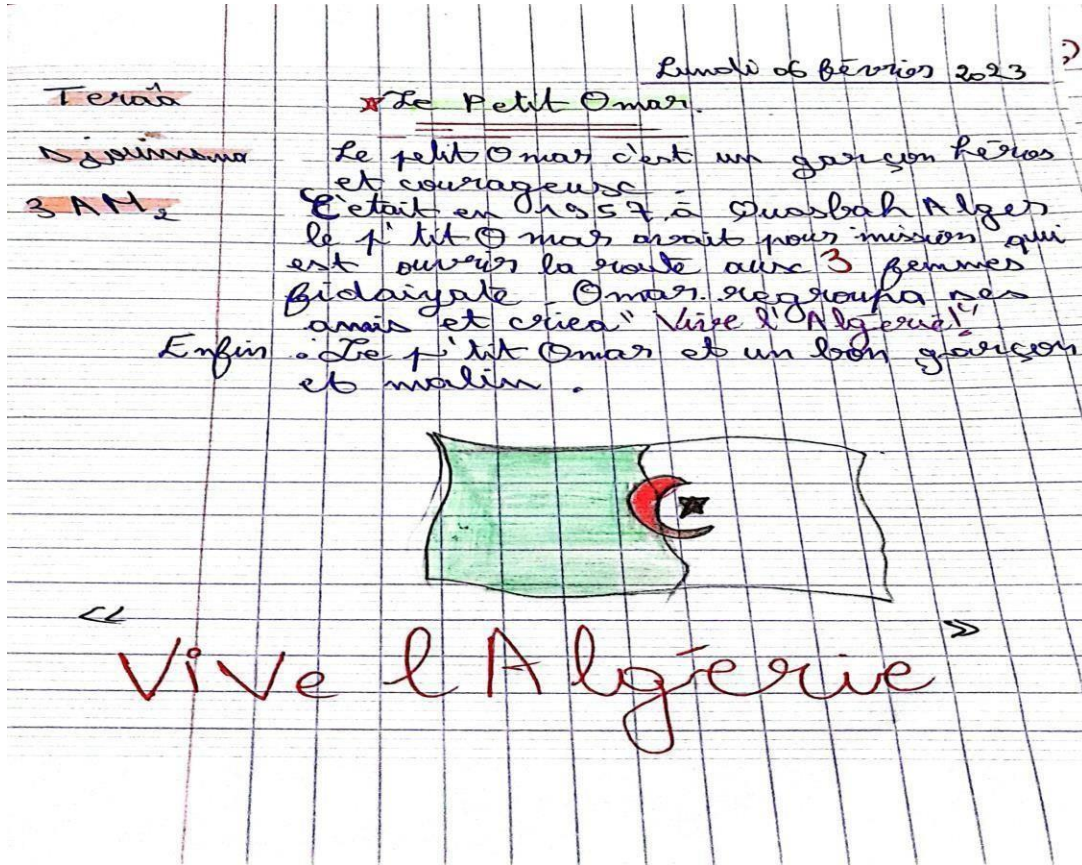 Lundi 06 février 2023
Teraâ
*Le Petit Omar.
Djoumana
Le petit Omar c'est un garçon héros
et courageuse.
3 AM2
C'était en 1957, à Quasbah Alger
le p'tit Omar avait pour mission qui
est ouvrir la route aux 3 femmes
fidaiyate. Omar regroupa ses
amis et criea "Vive l'Algerie!"
Enfin : Le p'tit Omar et un bon garçon
et malin.
<<
>>
Vive l Algérie